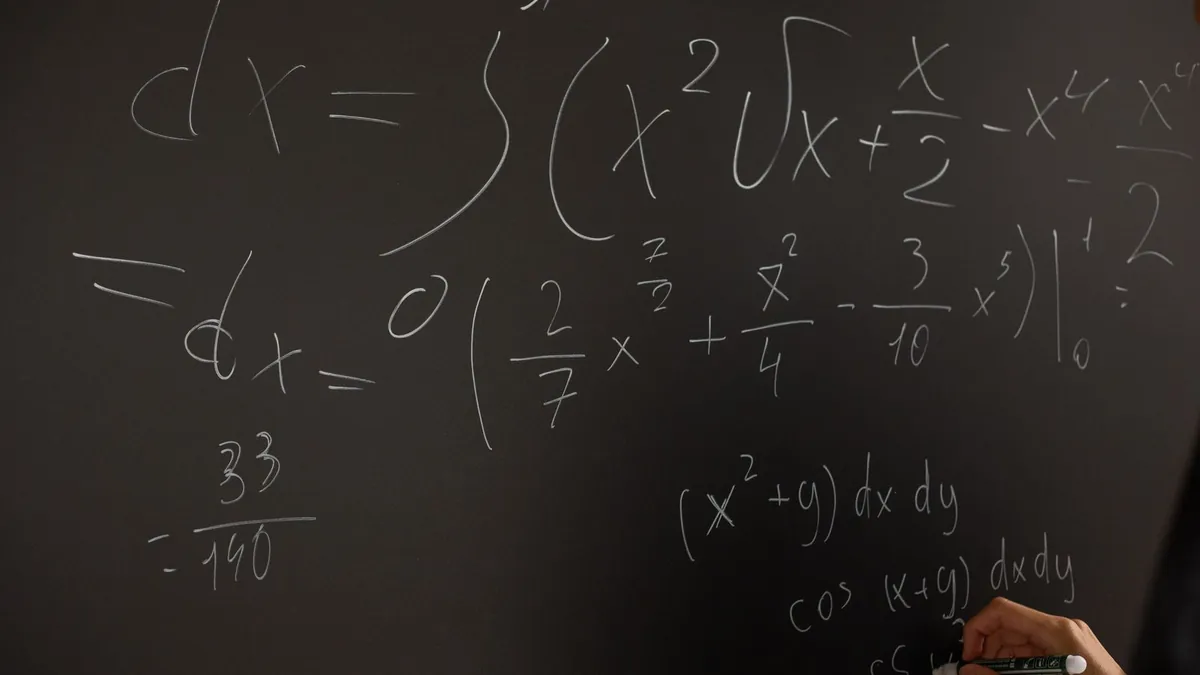 dx = ∫ (x² √x + x/2 - x⁴ - x⁴/2
= dx = 0 (2/7 x^7/2 + x²/4 - 3/10 x⁵)|₀¹ =
= 33/140
(x² + y) dx dy
cos (x+y) dxdy